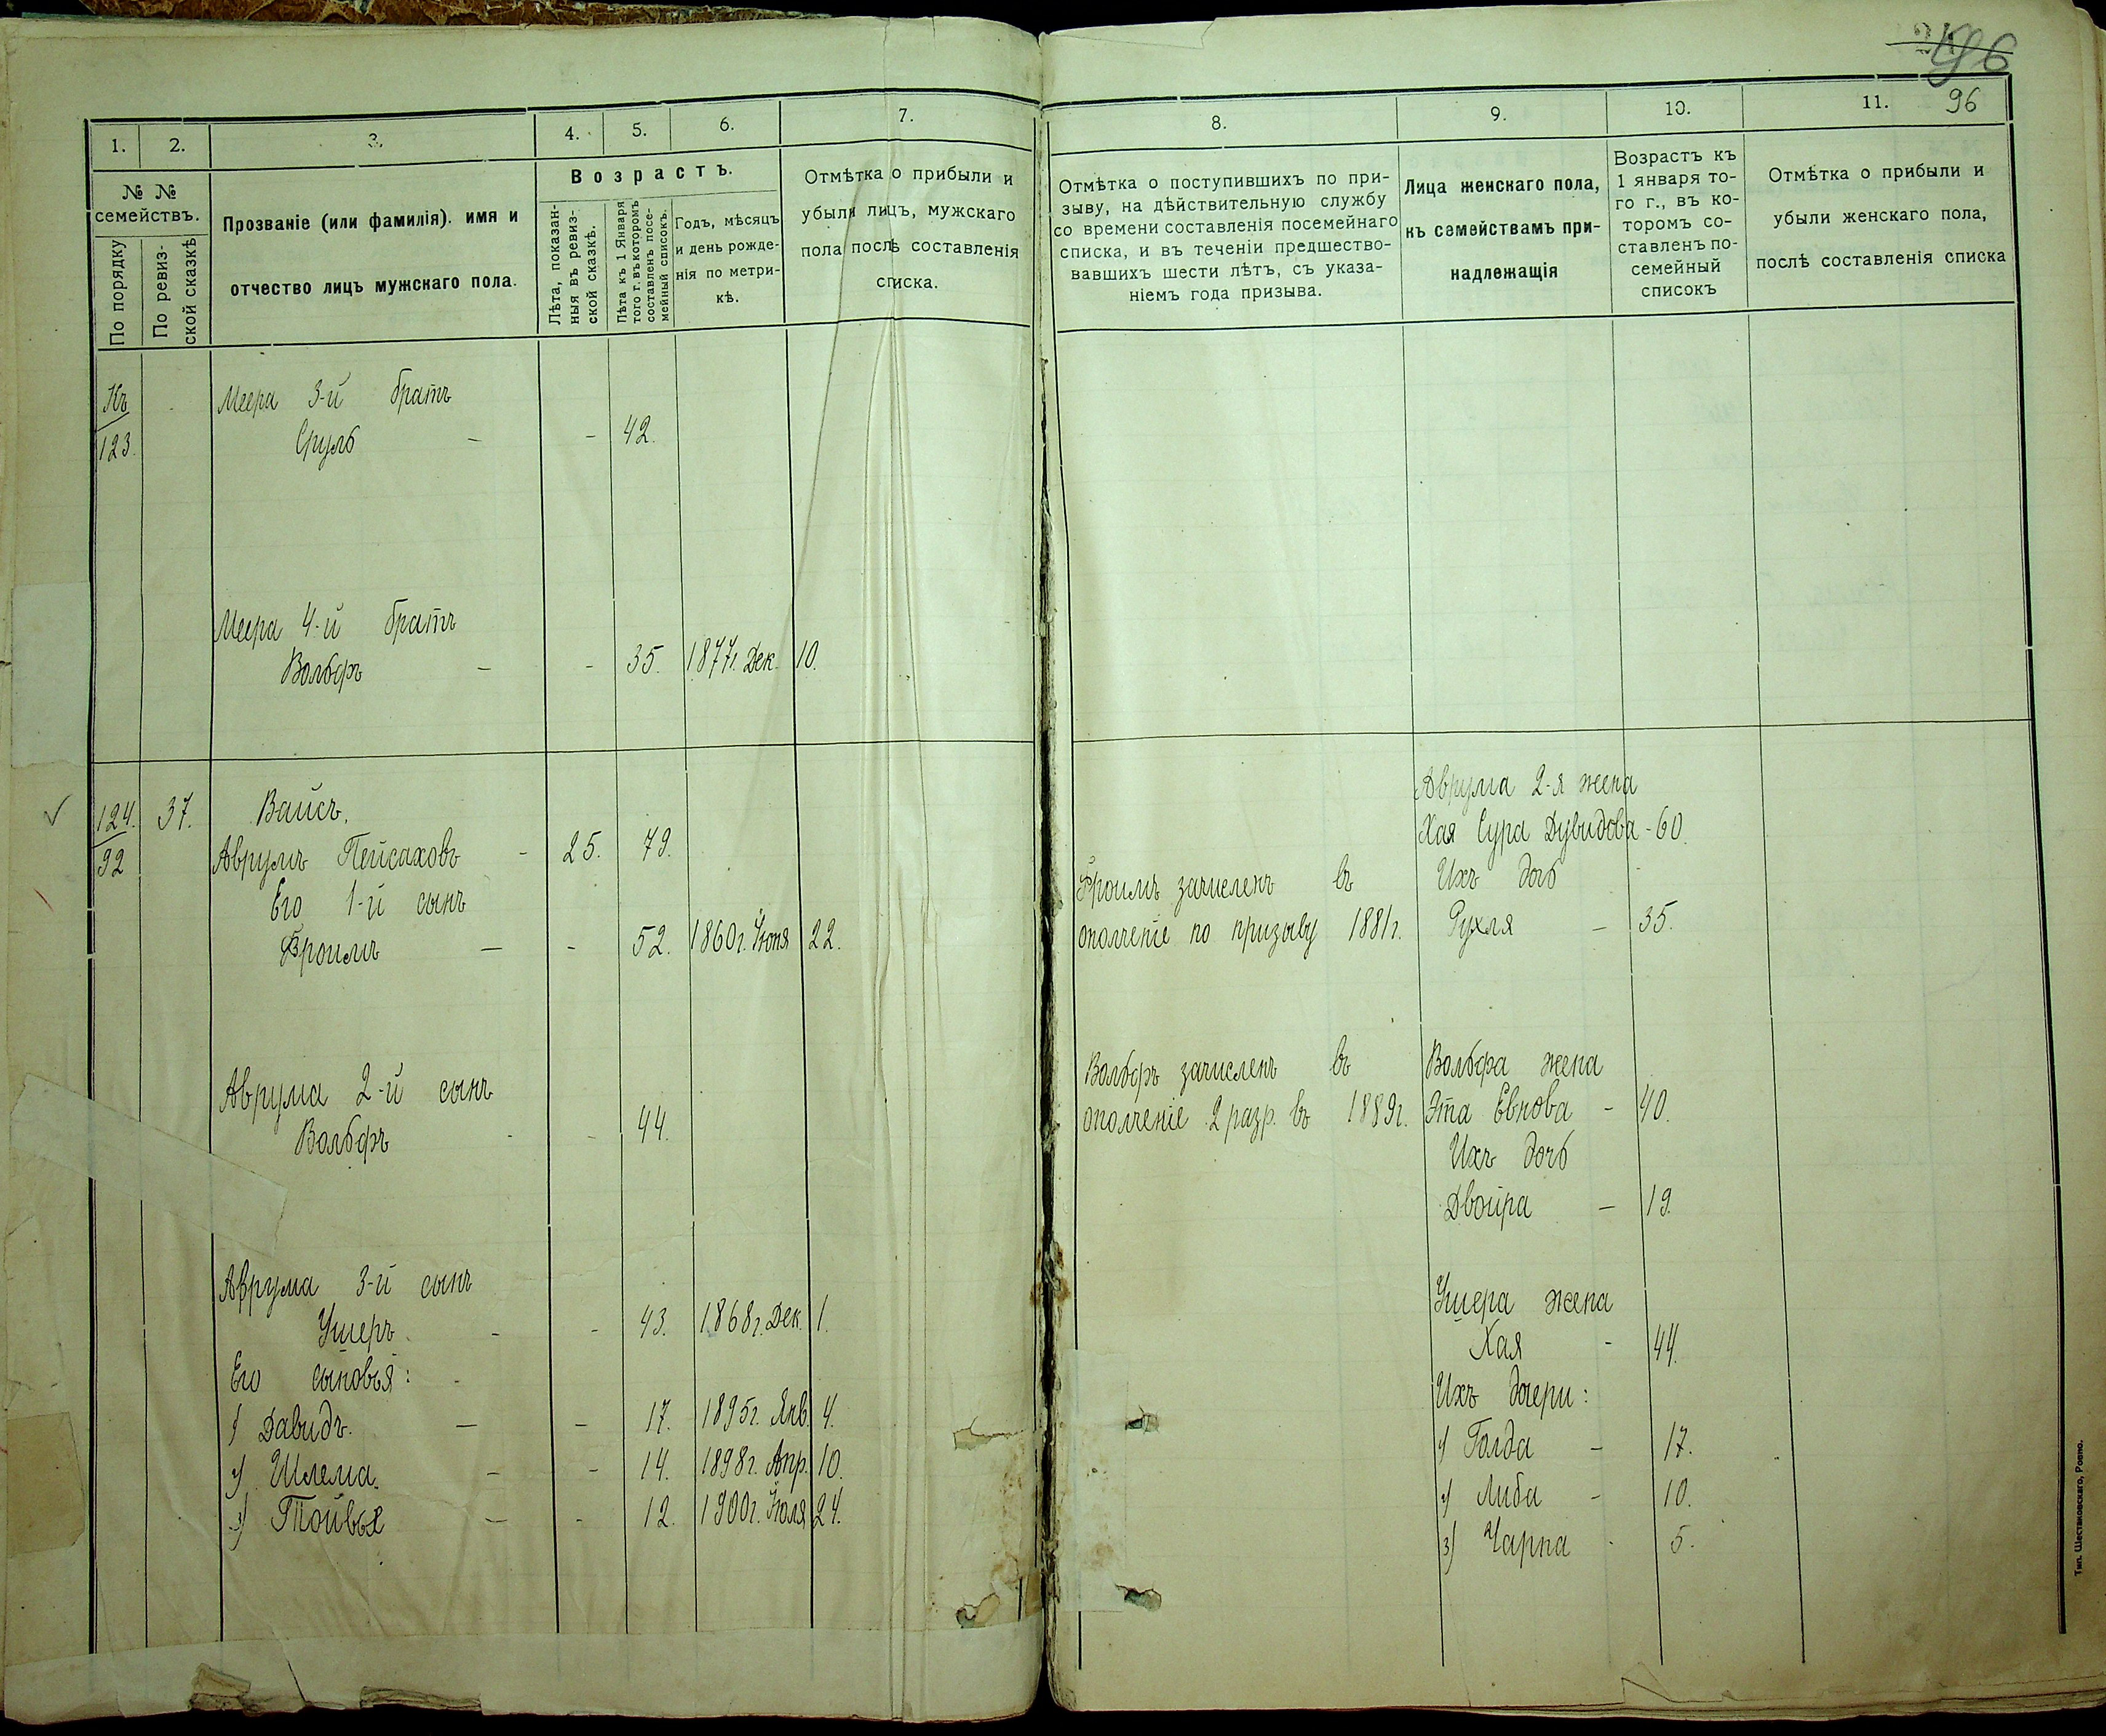 96
96
1. 2. 3. 4. 5. 6. 7.
№ № семействъ.
По порядку
По ревизской сказкѣ
Прозваніе (или фамилія). имя и
отчество лицъ мужскаго пола.
Возрастъ.
Лѣта, показан-
ныя въ ревиз-
ской сказкѣ.
Лѣта къ 1 Января
того г. въ которомъ
составленъ посе-
мейный списокъ.
Годъ, мѣсяцъ
и день рожде-
нія по метри-
кѣ.
Отмѣтка о прибыли и
убыли лицъ, мужскаго
пола послѣ составленія
списка.
Къ Меера 3-й братъ
123. Сруль - - 42.
Меера 4-й братъ
Вольфъ - - 35. 1877г. Дек. 10.
124. 37. Вайсъ.
92 Аврумъ Пейсаховъ - 25. 79.
Его 1-й сынъ
Фроимъ - - 52. 1860г. Іюня 22.
Аврума 2-й сынъ
Вольфъ - - 44.
Аврума 3-й сынъ
Ушеръ - - 43. 1868г. Дек. 1.
Его сыновья:
1) Давидъ. - - 17. 1895г. Янв. 4.
2) Шлема. - - 14. 1898г. Апр. 10.
3) Тойвье - - 12. 1900г. Іюля 24.
8. 9. 10. 11.
Отмѣтка о поступившихъ по при-
зыву, на дѣйствительную службу
со времени составленія посемейнаго
списка, и въ теченіи предшество-
вавшихъ шести лѣтъ, съ указа-
ніемъ года призыва.
Лица женскаго пола,
къ семействамъ при-
надлежащія
Возрастъ къ
1 января то-
го г., въ ко-
торомъ со-
ставленъ по-
семейный
списокъ
Отмѣтка о прибыли и
убыли женскаго пола,
послѣ составленія списка
Аврума 2-я жена
Хая Сура Дувидова - 60.
Фроимъ зачисленъ въ Ихъ дочь
ополченіе по призыву 1881г. Рухля - 35.
Вольфъ зачисленъ въ Вольфа жена
ополченіе 2 разр. въ 1889г. Эта Евнова - 40.
Ихъ дочь
Двойра - 19.
Ушера жена
Хая - 44.
Ихъ дочери:
1) Голда - 17.
2) Либа - 10.
3) Чарна - 5.
Тип. Шестаковскаго, Ровно.